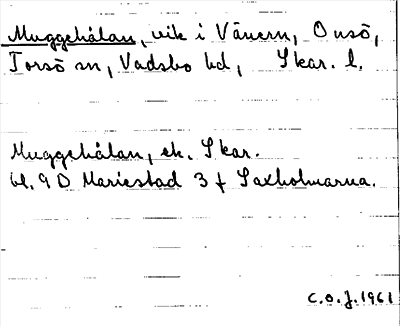 Muggehålan, vik i Vänern, Onsö,
Torsö sn, Vadsbo hd, Skar. l.
Muggehålan, ek. Skar.
bl. 9 D Mariestad 3 f Saxholmarna.
C.O.J. 1961